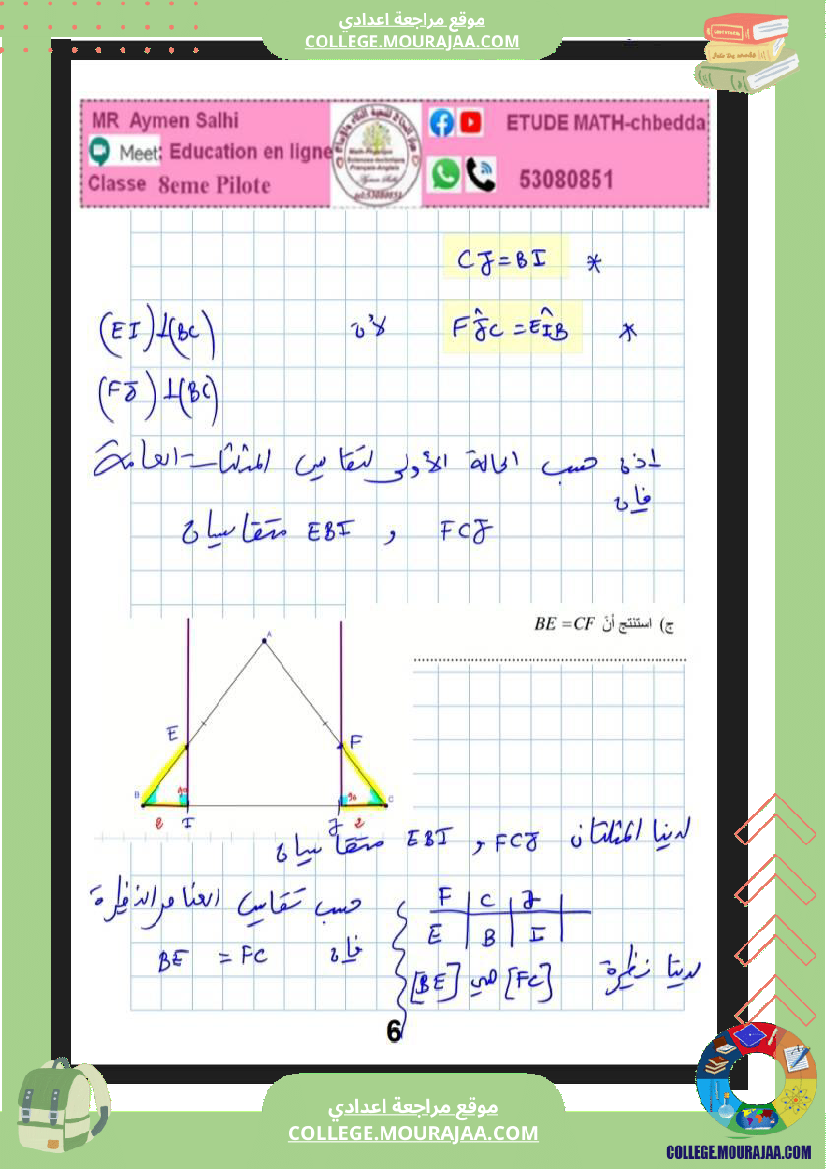 موقع مراجعة اعدادي
COLLEGE.MOURAJAA.COM
MR Aymen Salhi
Meet: Education en ligne
Classe 8eme Pilote
ETUDE MATH-chbedda
53080851
CJ=BI *
(EI)⊥(BC) لأن FĴC=EÎB *
(FJ)⊥(BC)
إذن حسب الحالة الأولى لتقايس المثلثات العامة
فإن
FCJ و EBI متقايسان
ج) استنتج أنّ BE =CF
A
E F
B 90 90 C
2 I J 2
لدينا المثلثان FCJ و EBI متقايسان
F C J
E B I
حسب تقايس العناصر النظيرة
فإن BE = FC
لدينا نظيرة [FC] هي [BE]
6
موقع مراجعة اعدادي
COLLEGE.MOURAJAA.COM
COLLEGE.MOURAJAA.COM